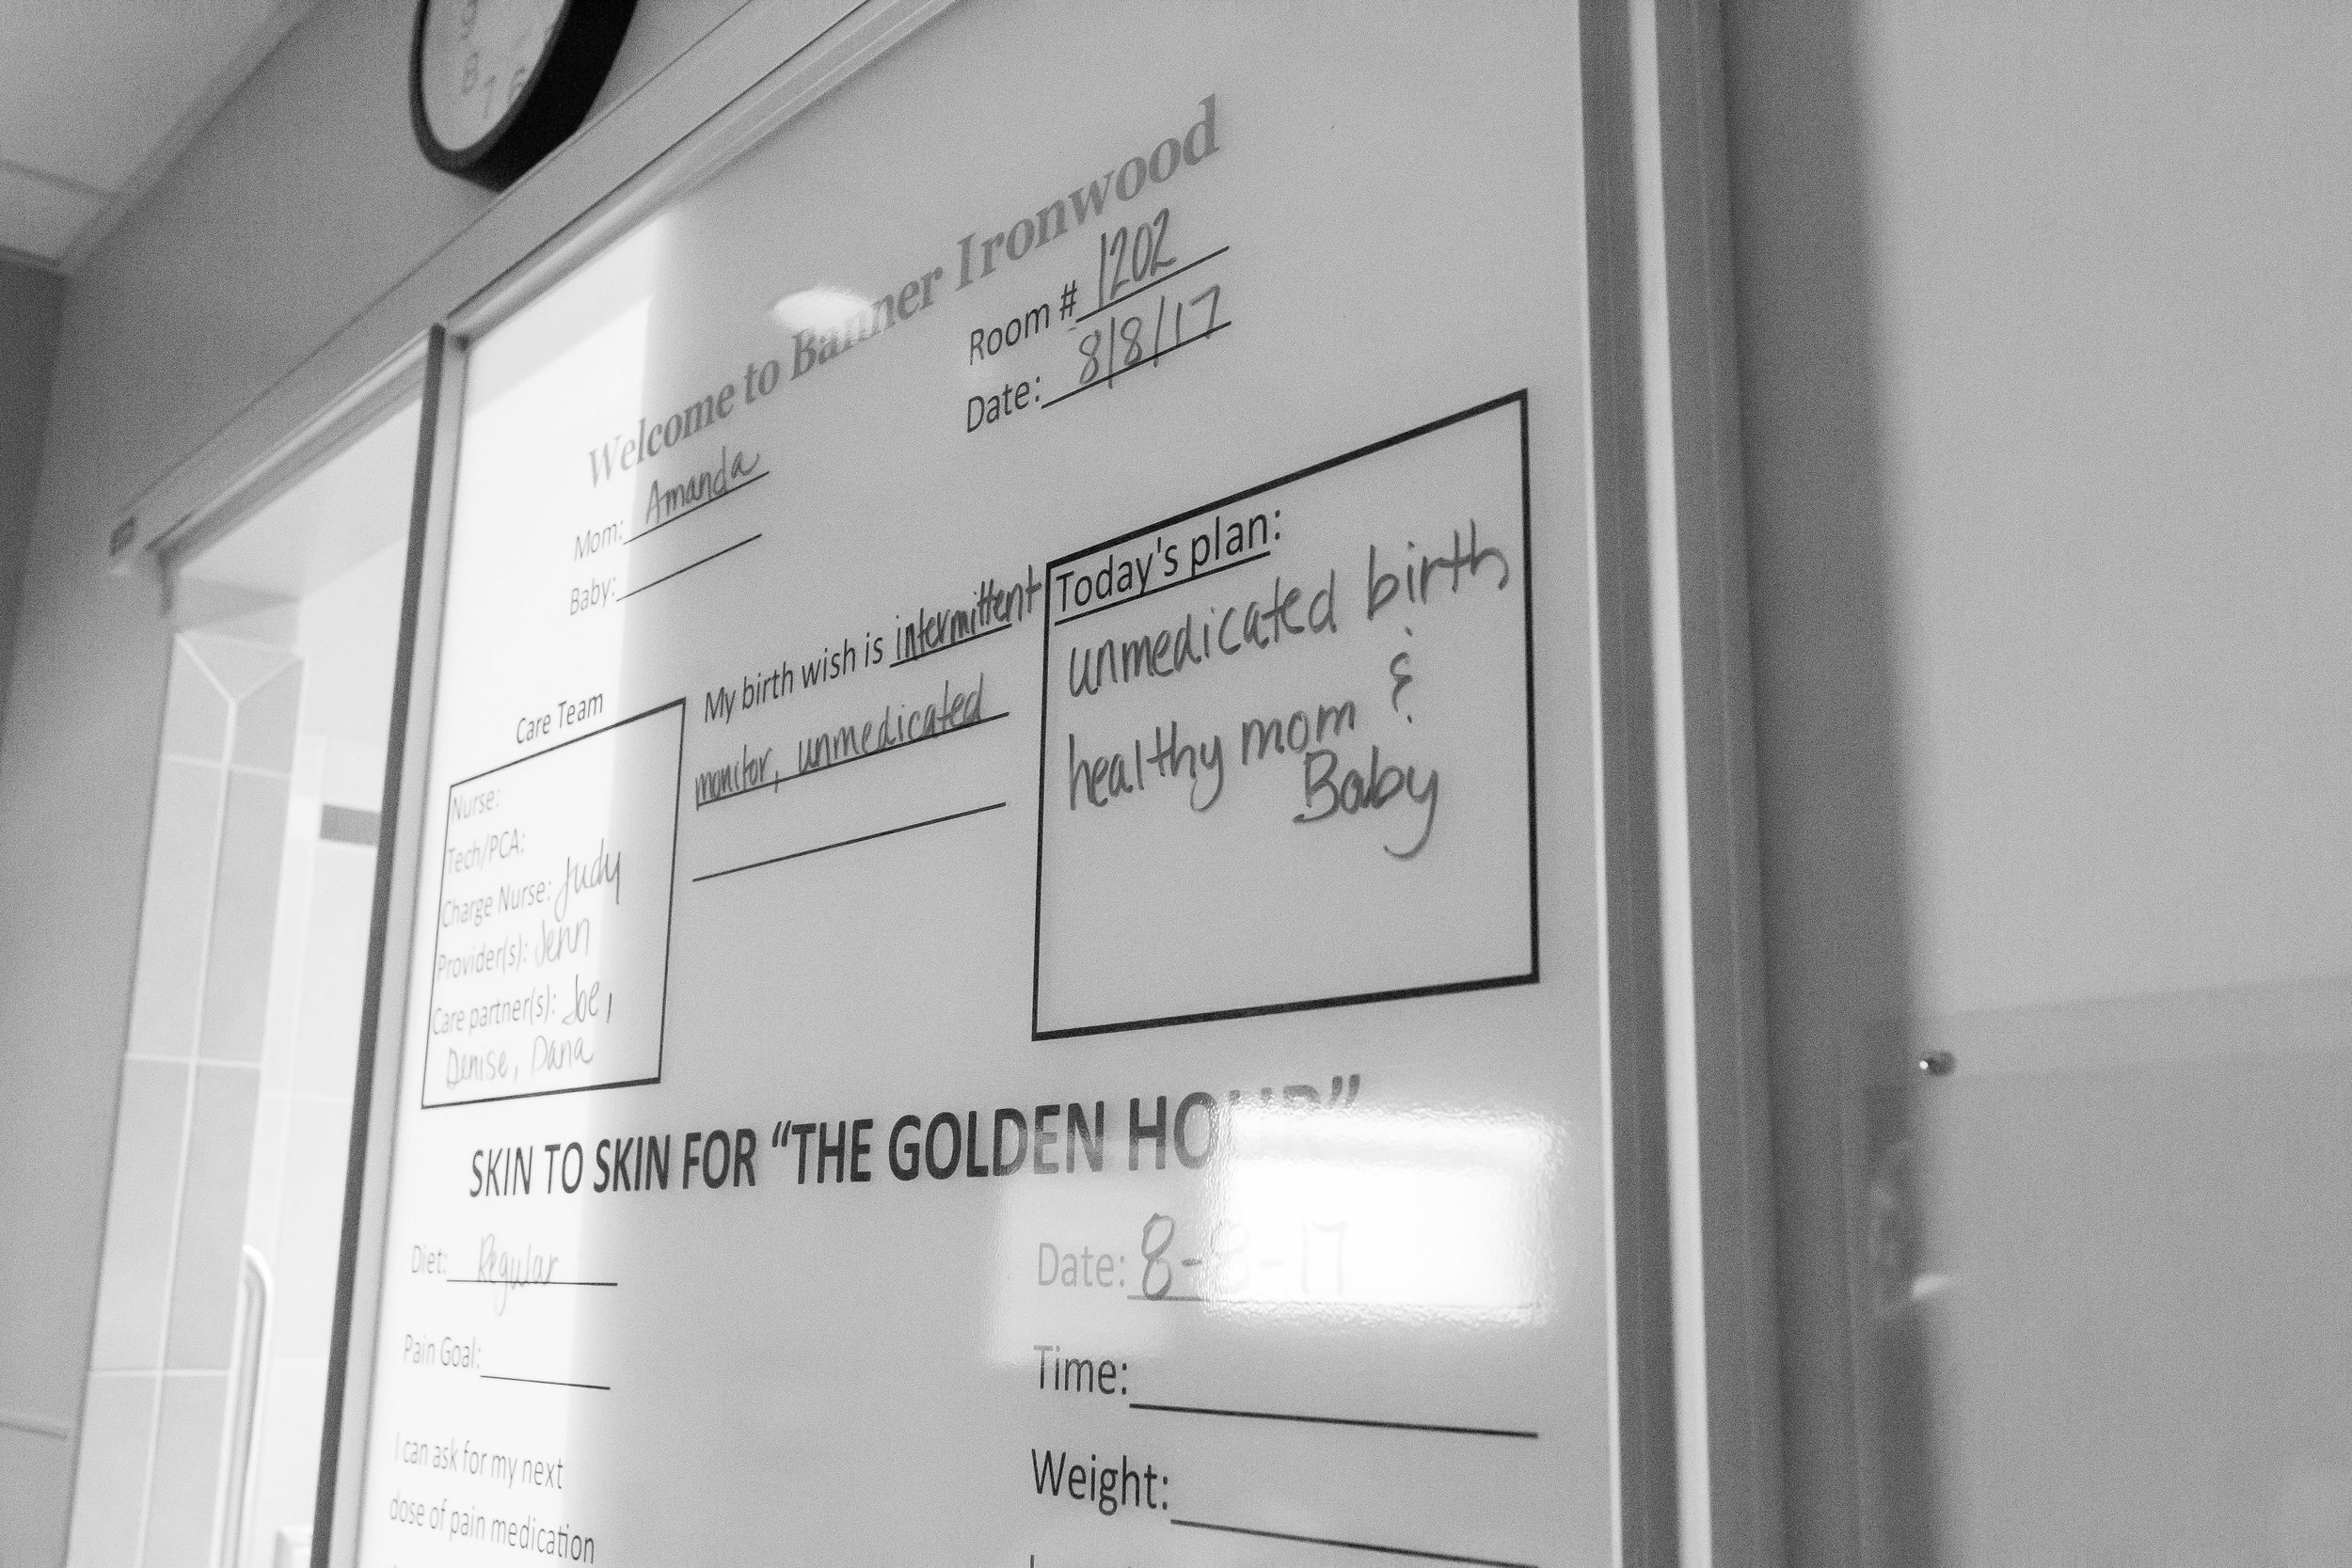 9
8
7
6
Welcome to Banner Ironwood
Room # 1202
Date: 8/8/17
Mom: Amanda
Baby:
My birth wish is intermittent
monitor, unmedicated
Today's plan:
unmedicated birth
healthy mom &
Baby
Care Team
Nurse:
Tech/PCA:
Charge Nurse: Judy
Provider(s): Jenn
Care partner(s): Joe,
Denise, Dana
SKIN TO SKIN FOR “THE GOLDEN HOUR”
Diet: Regular
Pain Goal:
I can ask for my next
dose of pain medication
Date: 8-8-17
Time:
Weight: